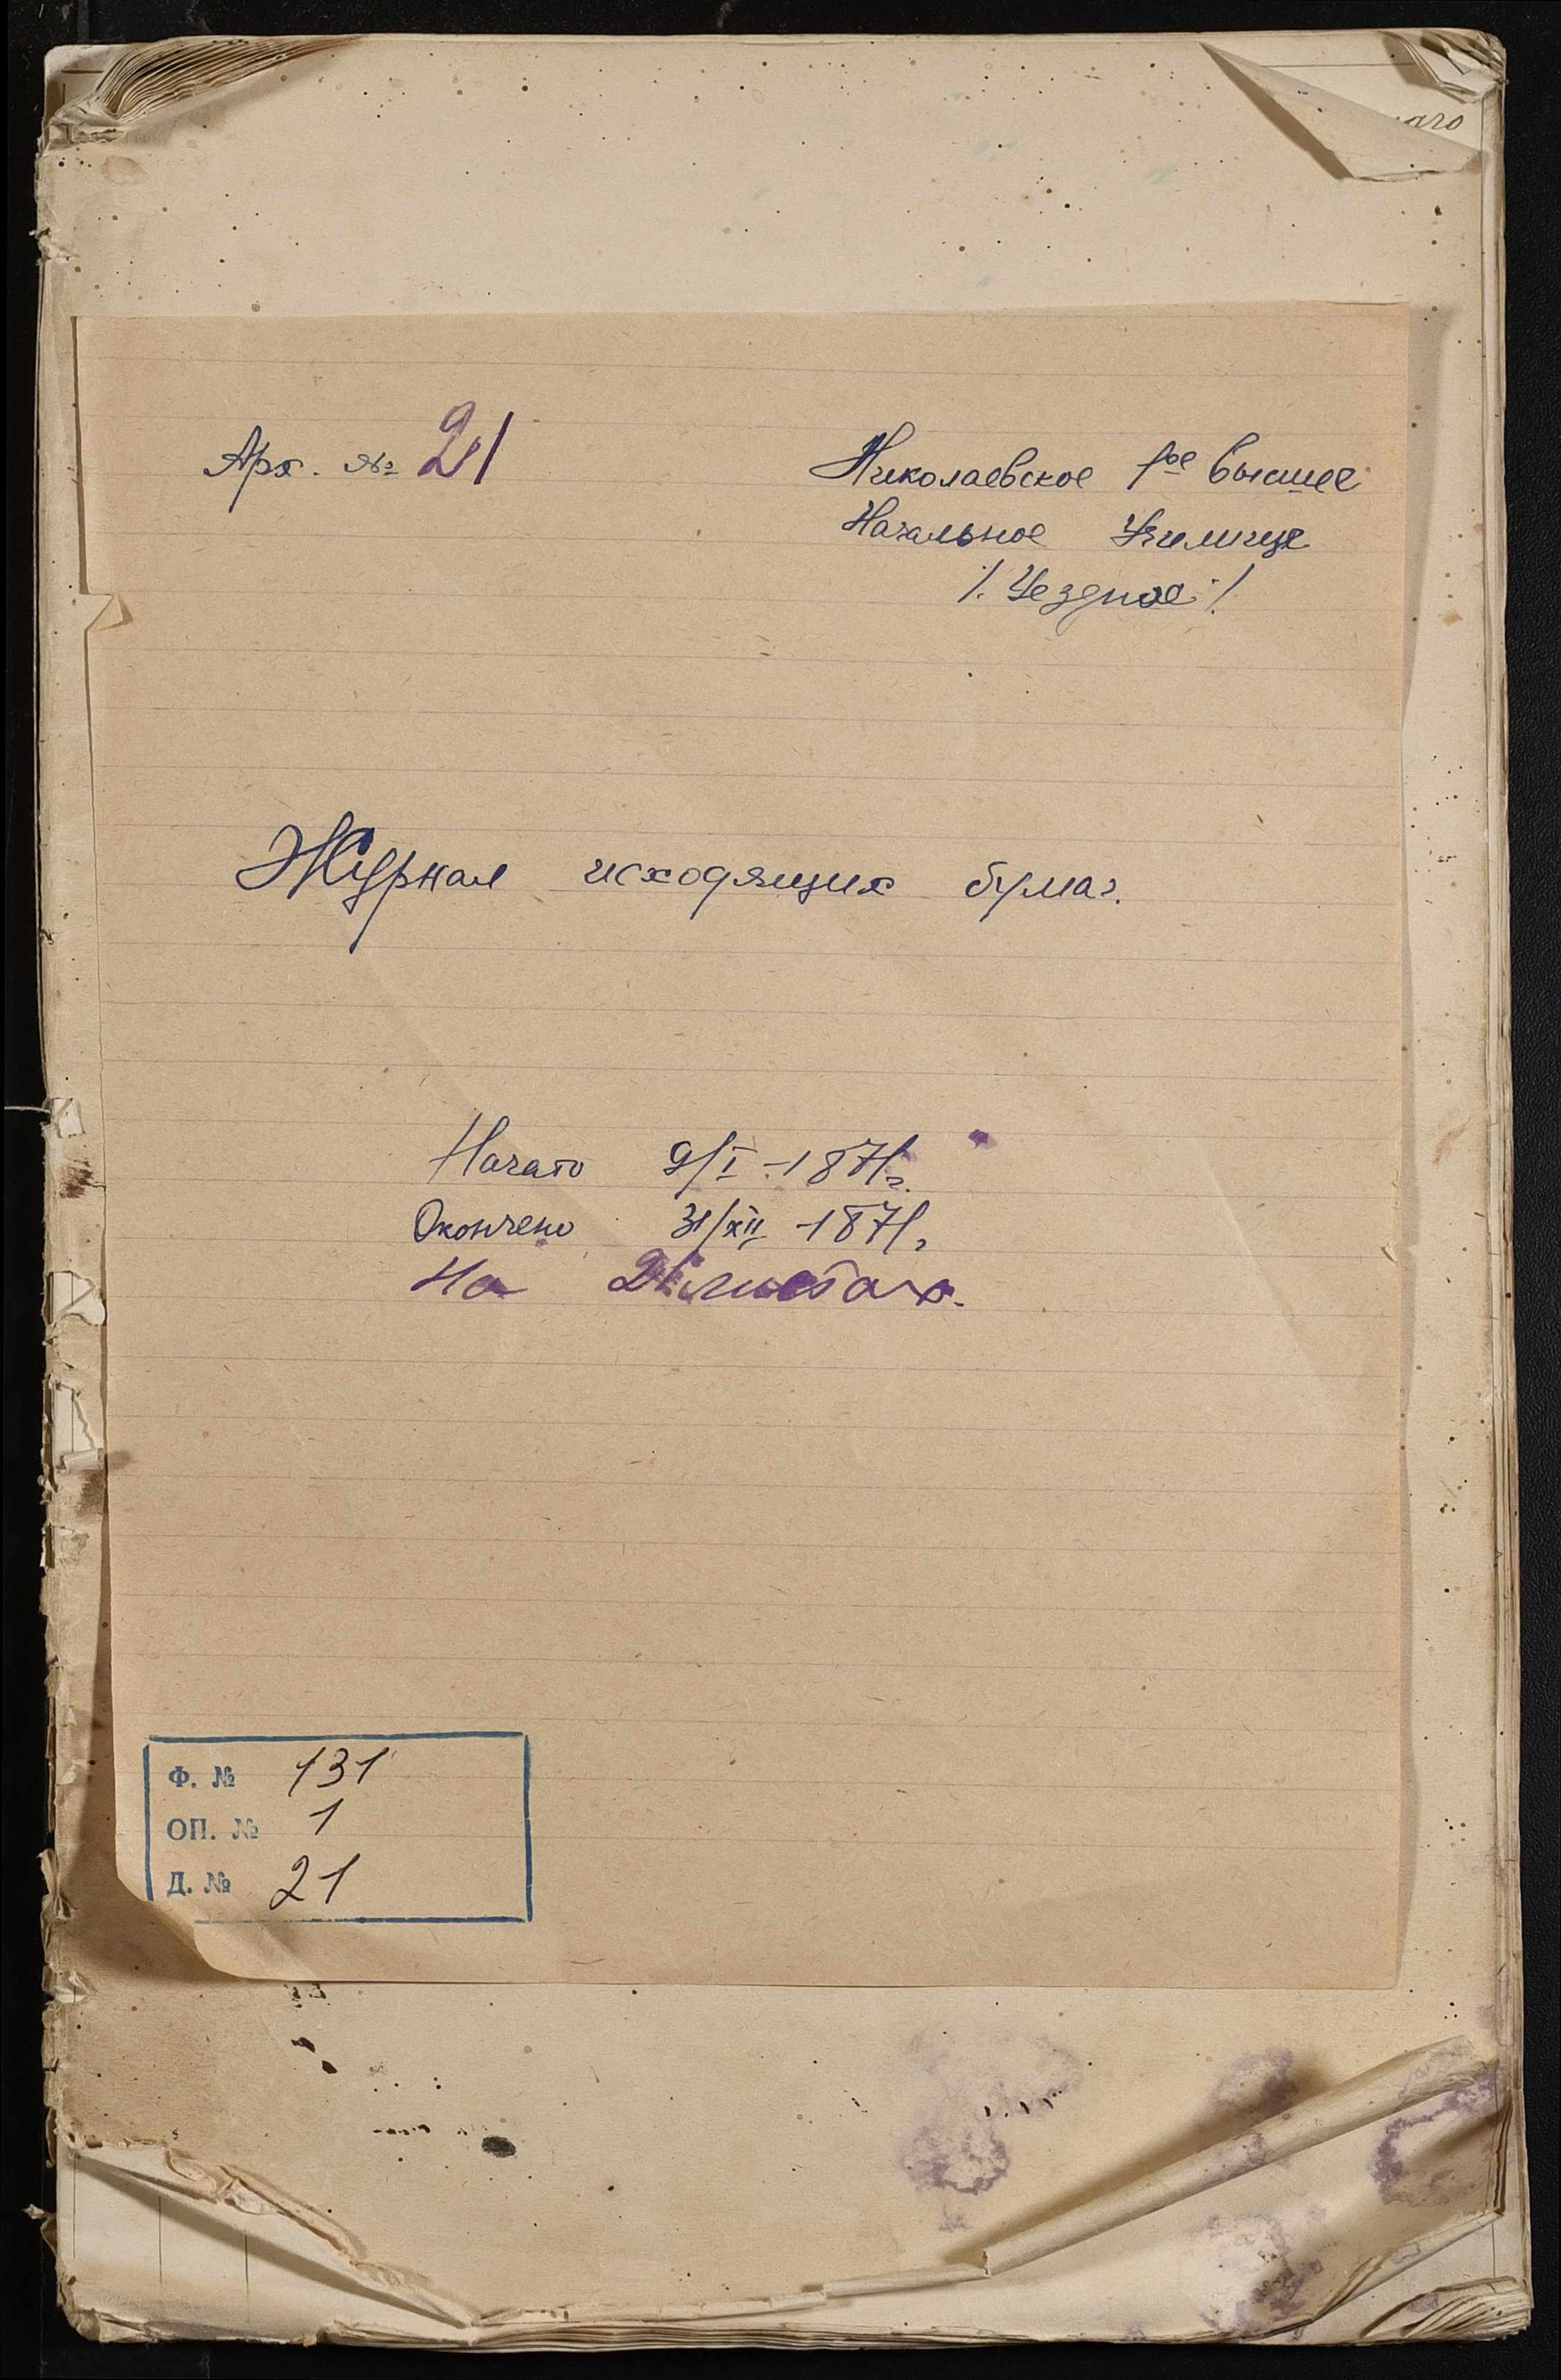 аго
Арх. № 21
Николаевское 1ое Высшее
Начальное Училище
/. Уездное ./
Журнал исходящих бумаг.
Начато 9/I - 1871г.
Окончено 31/XII 1871г.
На листах.
Ф. № 131
ОП. № 1
Д. № 21